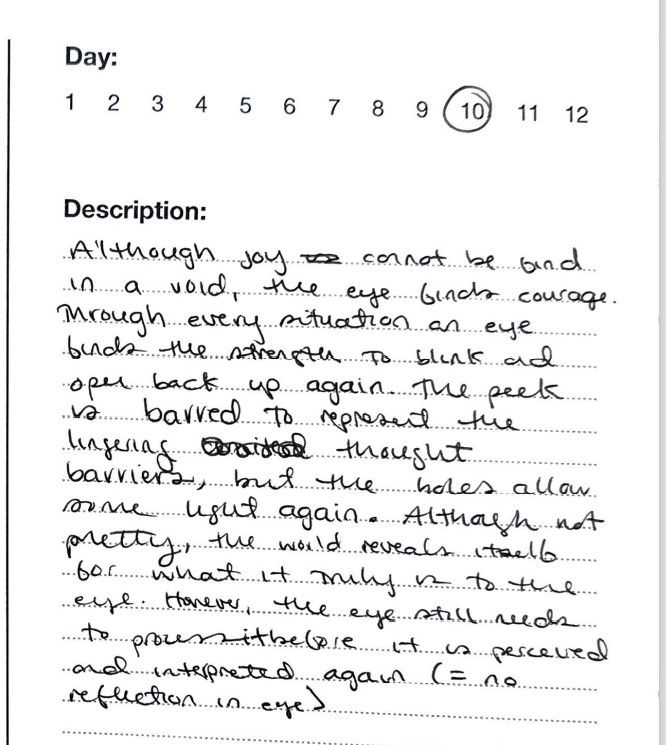 Day:
1 2 3 4 5 6 7 8 9 10 11 12
Description:
Although joy cannot be find
in a void, the eye finds courage.
Through every situation an eye
finds the strength to blink and
open back up again. The peek
is barred to represent the
lingering thought
barriers, but the holes allow
some light again. Although not
pretty, the world reveals itself
for what it truly is to the
eye. However, the eye still needs
to process it before it is perceived
and interpreted again (= no
reflection in eye)